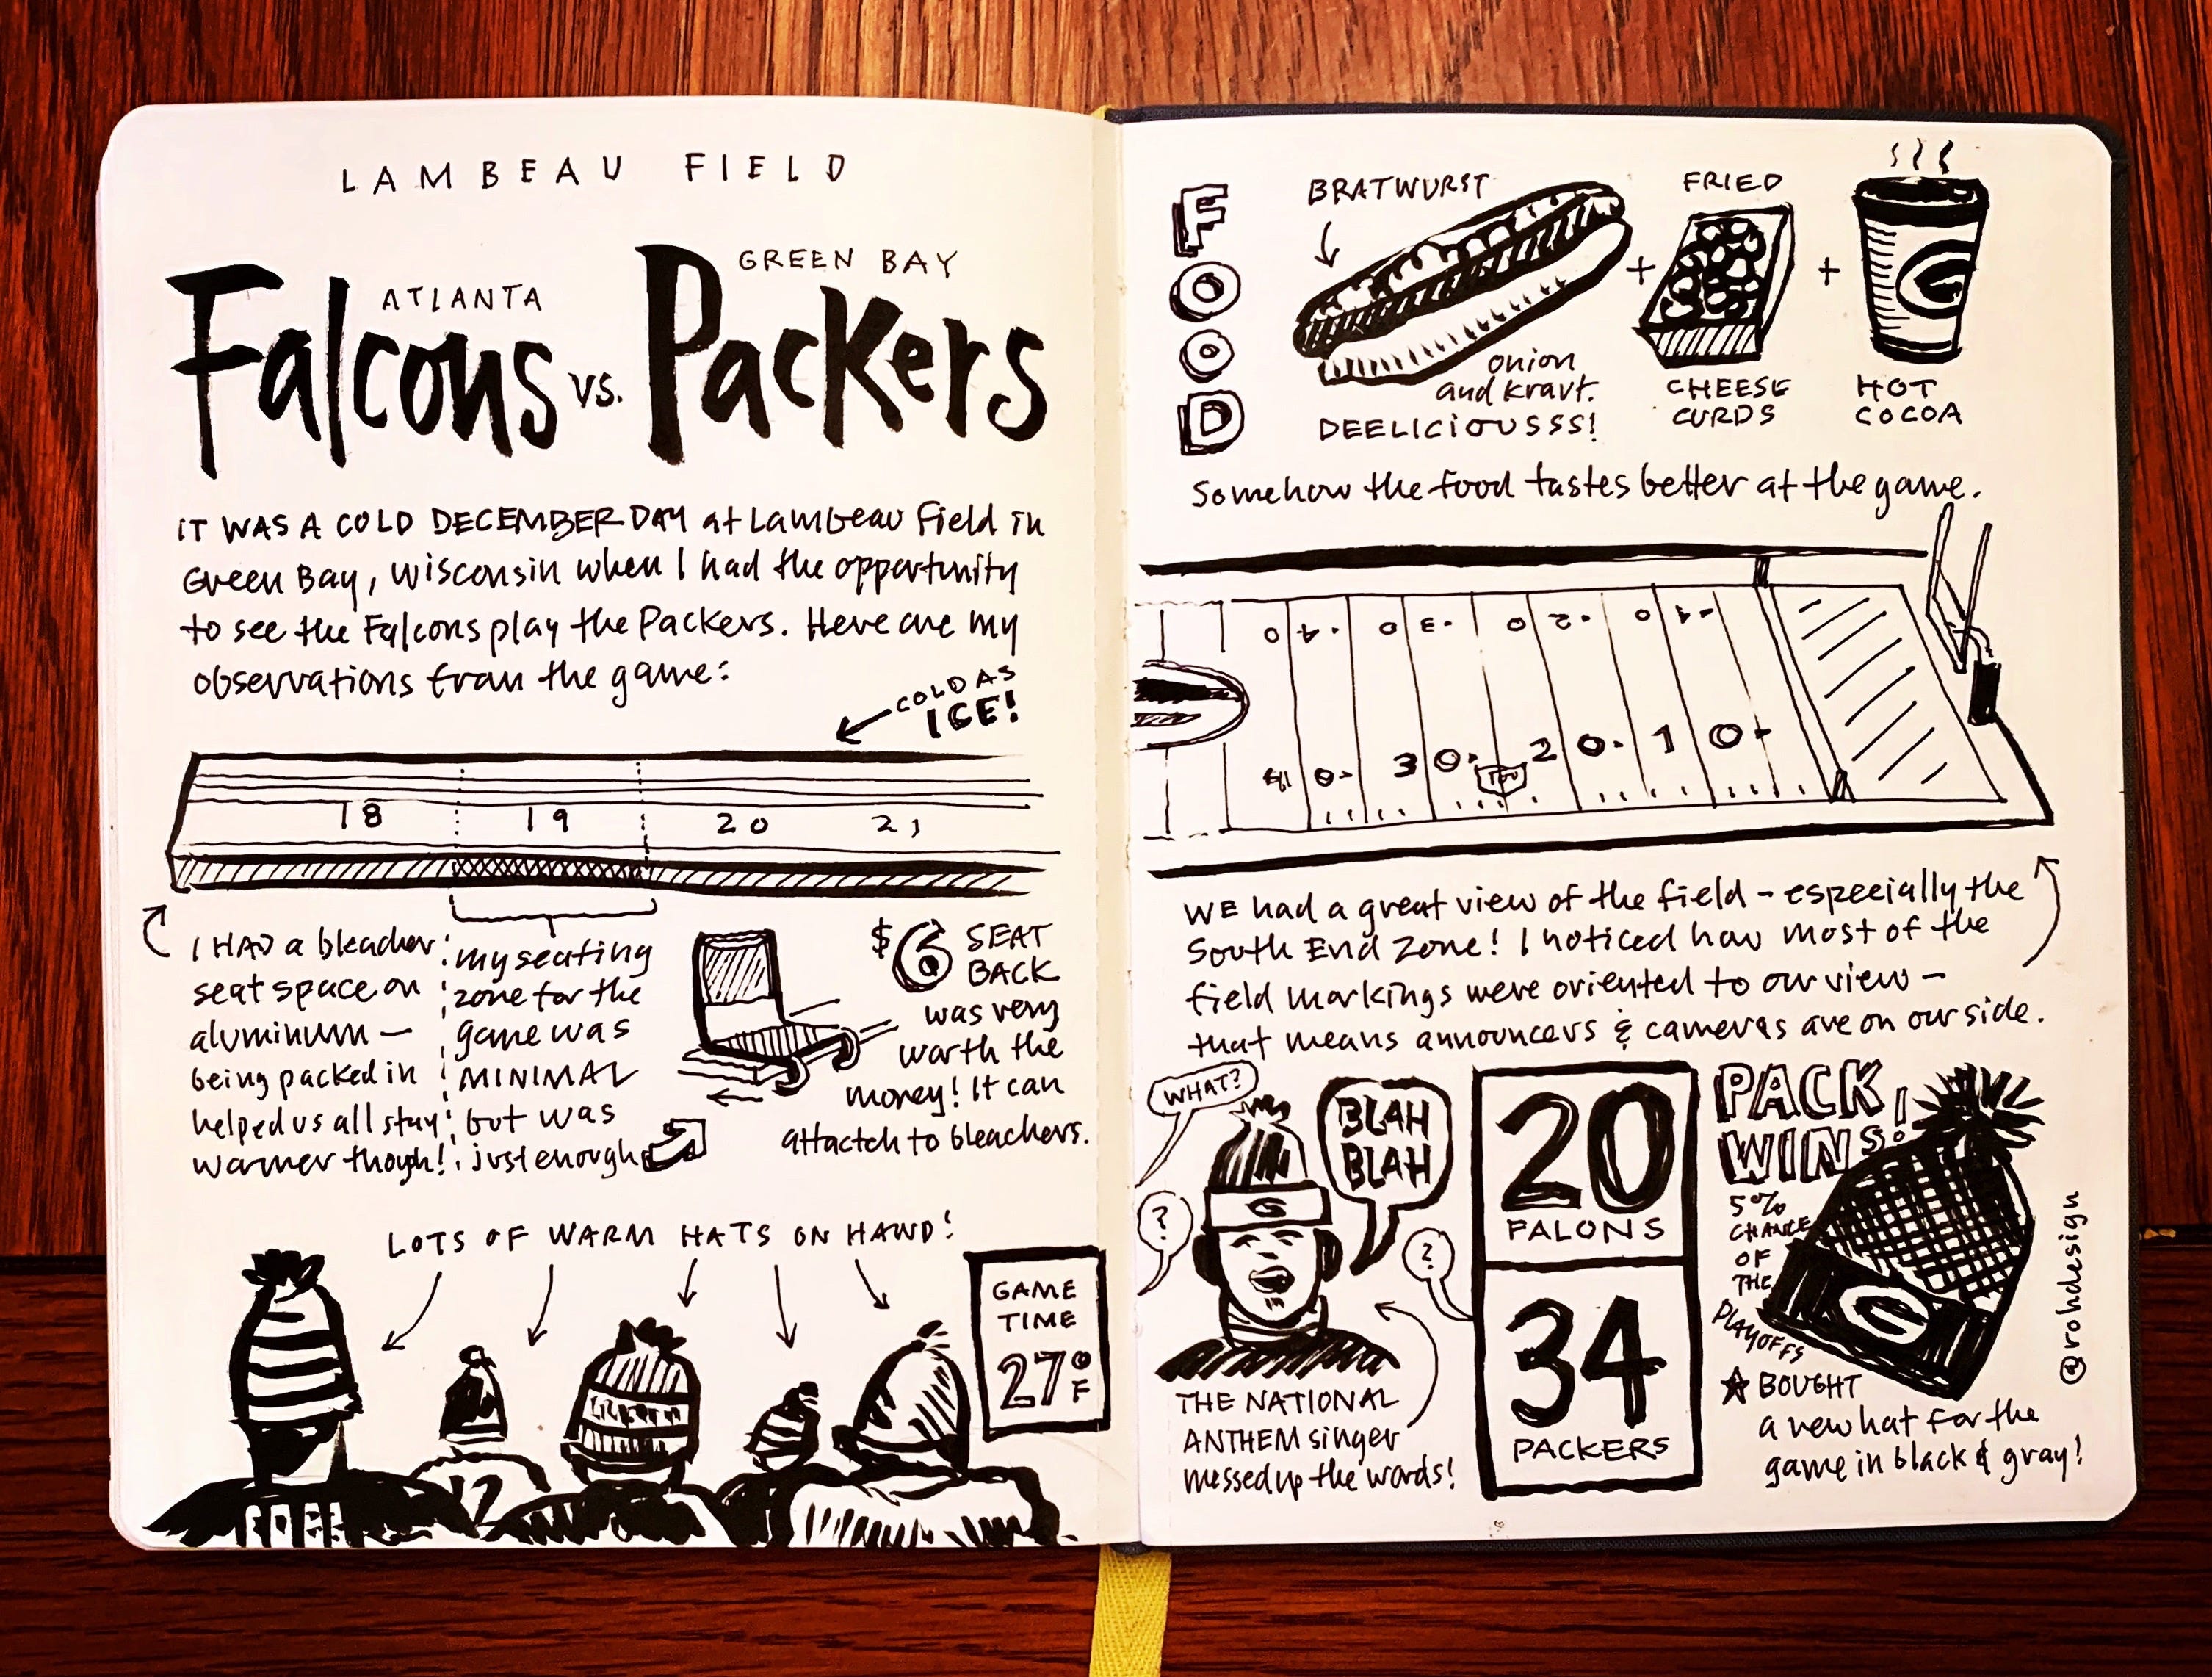 LAMBEAU FIELD
ATLANTA
GREEN BAY
Falcons vs. Packers
IT WAS A COLD DECEMBER DAY at Lambeau Field in
Green Bay, Wisconsin when I had the opportunity
to see the Falcons play the Packers. Here are my
observations from the game:
COLD AS
ICE!
18 19 20 21
I HAD a bleacher
seat space on
aluminum —
being packed in
helped us all stay
warmer though!
my seating
zone for the
game was
MINIMAL
but was
just enough
$6 SEAT
BACK
was very
worth the
money! It can
attactch to bleachers.
LOTS OF WARM HATS ON HAND!
GAME
TIME
27°F
12
FOOD
BRATWURST
onion
and kraut.
DEELICIOUSSS!
+
FRIED
CHEESE
CURDS
+
G
HOT
COCOA
Somehow the food tastes better at the game.
40 30 20 10
40 30 20 10
WE had a great view of the field – especially the
South End Zone! I noticed how most of the
field markings were oriented to our view –
that means announcers & cameras are on our side.
WHAT?
BLAH
BLAH
?
?
G
THE NATIONAL
ANTHEM singer
messed up the words!
20
FALONS
34
PACKERS
PACK
WINS!
5%
CHANCE
OF
THE
PLAYOFFS
G
★ BOUGHT
a new hat for the
game in black & gray!
@rohdesign